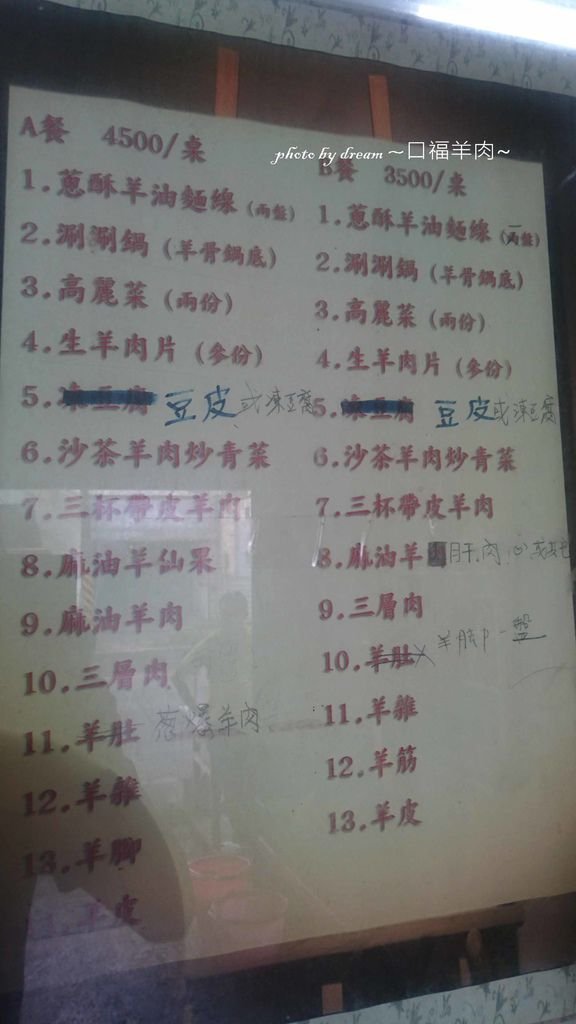 photo by dream ～口福羊肉~
A餐 4500/桌
1.蔥酥羊油麵線（兩盤）
2.涮涮鍋（羊骨鍋底）
3.高麗菜（兩份）
4.生羊肉片（參份）
5.凍豆腐 豆皮或凍豆腐
6.沙茶羊肉炒青菜
7.三杯帶皮羊肉
8.麻油羊仙果
9.麻油羊肉
10.三層肉
11.羊肚 蔥爆羊肉
12.羊雜
13.羊腳
羊皮
B餐 3500/桌
1.蔥酥羊油麵線（兩盤）
2.涮涮鍋（羊骨鍋底）
3.高麗菜（兩份）
4.生羊肉片（參份）
5.凍豆腐 豆皮或凍豆腐
6.沙茶羊肉炒青菜
7.三杯帶皮羊肉
8.麻油羊 肝.肉
9.三層肉
10.羊肚 羊腳 一盤
11.羊雜
12.羊筋
13.羊皮